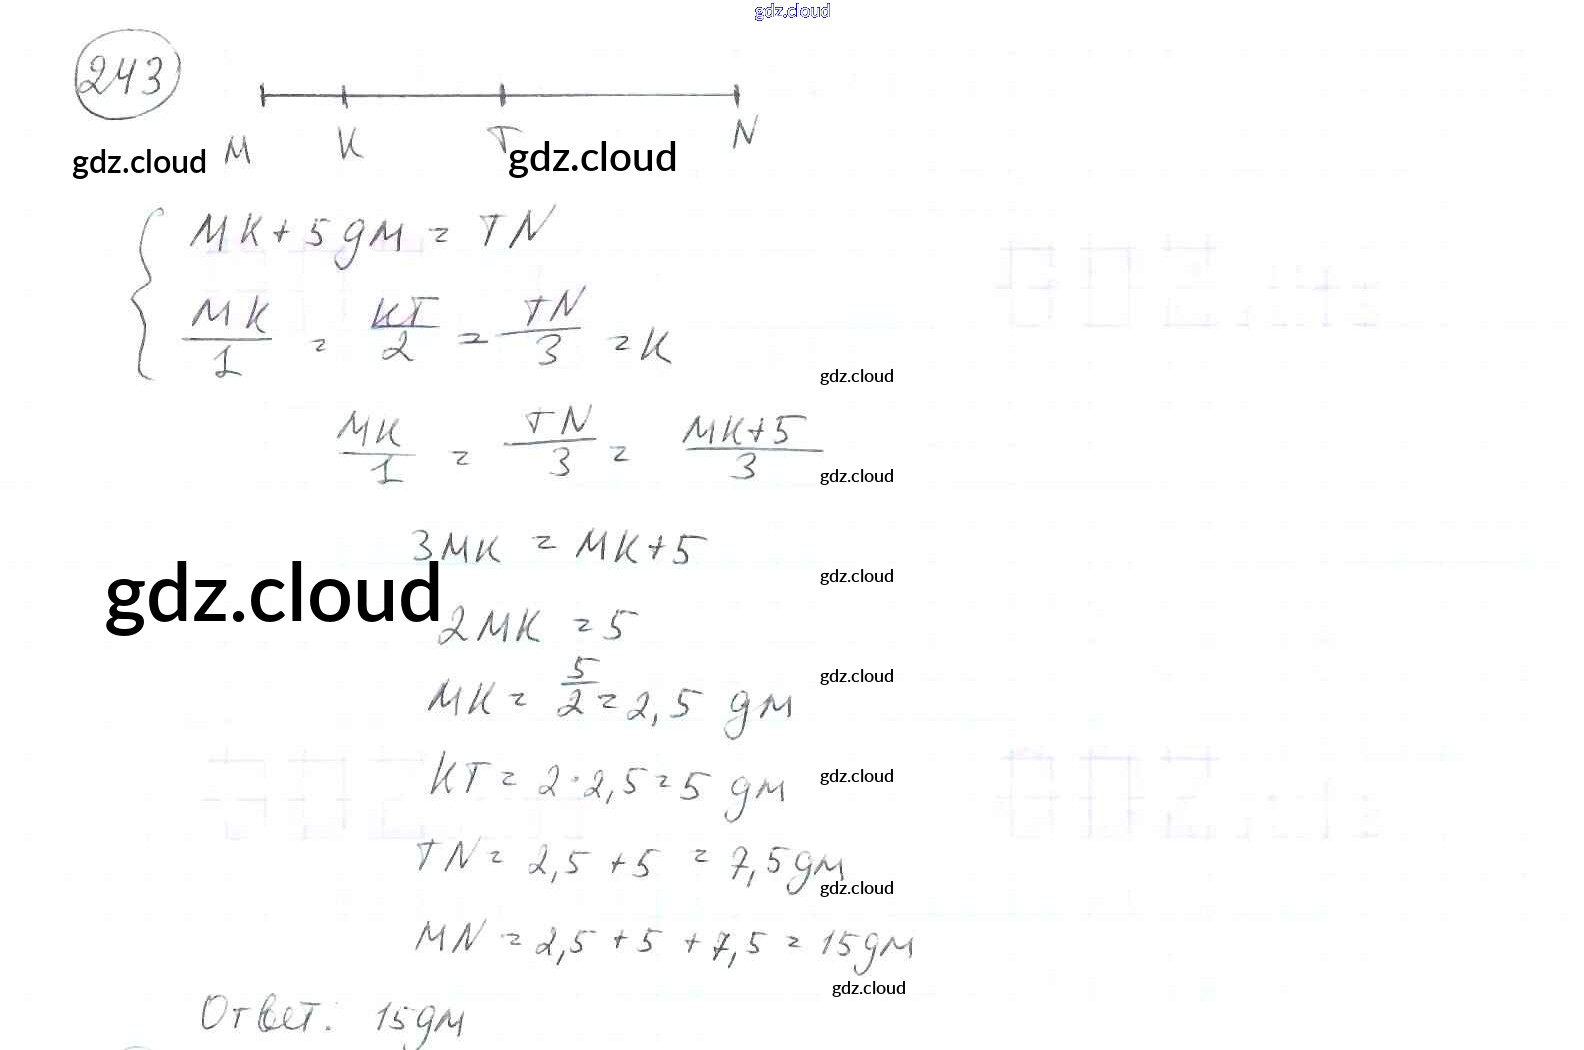 gdz.cloud
243
M K T N
gdz.cloud gdz.cloud
MK + 5 дм = TN
MK/1 = KT/2 = TN/3 = K
gdz.cloud
MK/1 = TN/3 = MK+5/3
gdz.cloud
3MK = MK+5
gdz.cloud
gdz.cloud
2MK = 5
MK = 5/2 = 2,5 дм
gdz.cloud
KT = 2·2,5 = 5 дм
gdz.cloud
TN = 2,5 + 5 = 7,5 дм
gdz.cloud
MN = 2,5 + 5 + 7,5 = 15 дм
gdz.cloud
Ответ: 15 дм